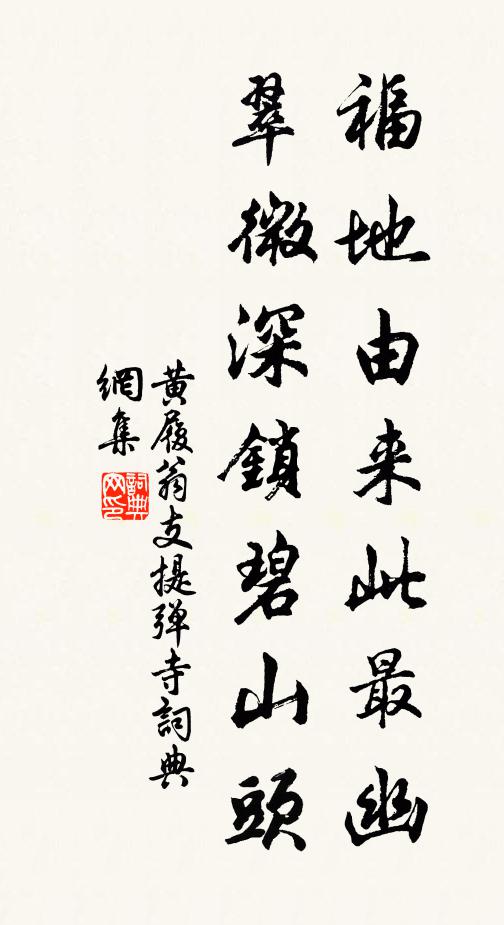 福地由来此最幽
翠微深鎖碧山頭
黄履翁支提弹寺詞典
網集
詞典
网印